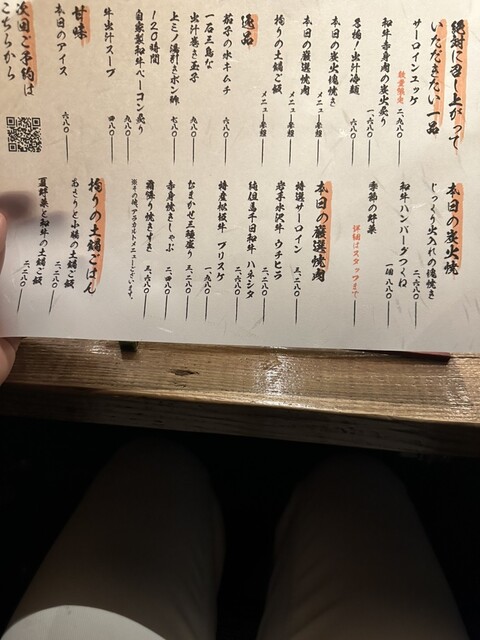 絶対に召し上がって
いただきたい一品
サーロインユッケ
数量限定 二、九八〇
和牛赤身肉の炭火炙り
一、六八〇
名物!出汁冷麺
六八〇
本日の炭火塊焼き
メニュー参照
本日の厳選焼肉
メニュー参照
拘りの土鍋ご飯
メニュー参照
逸品
茄子の水キムチ
六八〇
一石三鳥な
出汁巻き玉子
七八〇
上ミノ湯引きポン酢
七八〇
120時間
自家製和牛ベーコン炙り
八八〇
牛出汁スープ
四八〇
甘味
本日のアイス
六八〇
次回ご予約は
こちらから
本日の炭火焼
じっくり火入れの塊焼き
二、六八〇
和牛ハンバーグつくね
一個 八八〇
季節の野菜
詳細はスタッフまで
本日の厳選焼肉
特選サーロイン
三、二八〇
岩手水沢牛 ウチヒラ
二、二八〇
純但馬千日和牛 ハネシタ
二、六八〇
特産松阪牛 ブリスケ
一、九八〇
おまかせ三種盛り
三、二八〇
赤身焼きしゃぶ
二、四八〇
霜降り焼きすき
三、六八〇
※その他、アラカルトメニューございます。
拘りの土鍋ごはん
あさりと小福の土鍋ご飯
二、二八〇
夏野菜と和牛の土鍋ご飯
二、二八〇